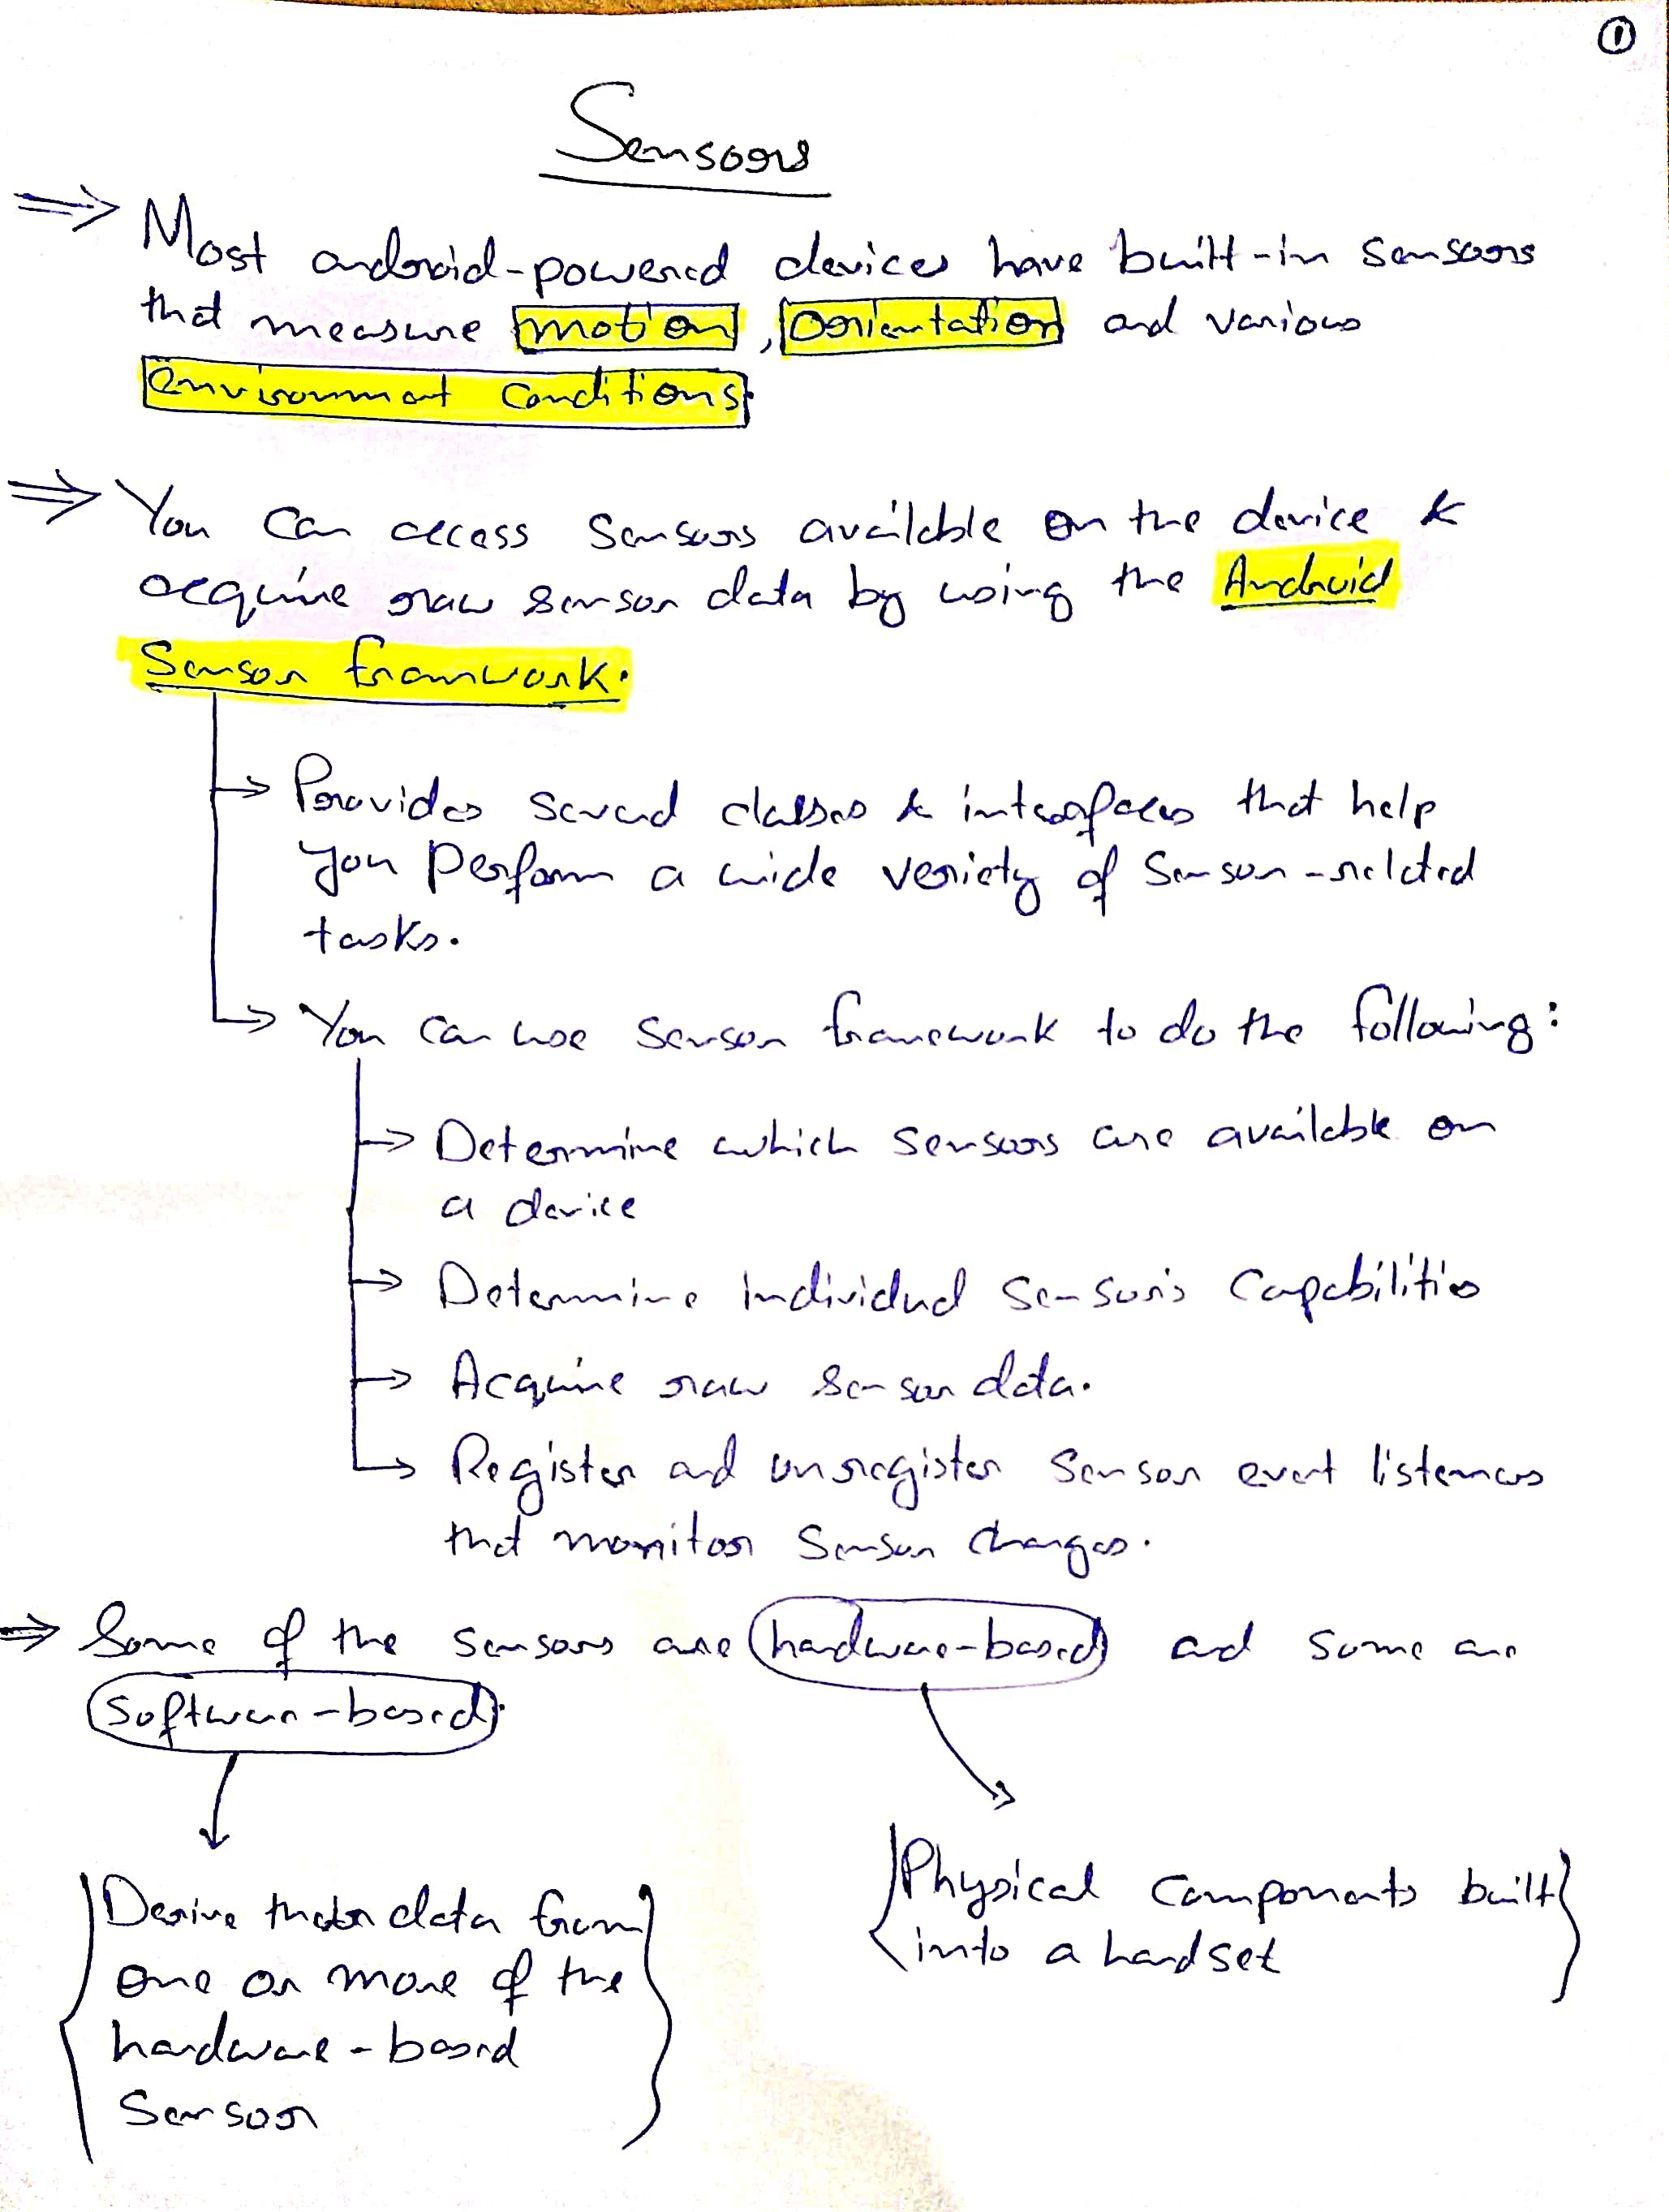 ①
Sensors
⇒ Most android-powered devices have built-in sensors
that measure motion, Orientation and various
environment conditions.
⇒ You can access sensors available on the device &
acquire raw sensor data by using the Android
Sensor framwork.
→ Provides several classes & interfaces that help
you perform a wide veriety of sensor-related
tasks.
→ You can use sensor framework to do the following:
→ Determine which sensors are available on
a device
→ Determine Individual sensor's capabilities
→ Acquire raw sensor data.
→ Register and unregister sensor event listeners
that monitor sensor changes.
⇒ Some of the sensors are hardware-based and some are
software-based.
Physical components built
into a handset
Derive data from
one or more of the
hardware-based
Sensor